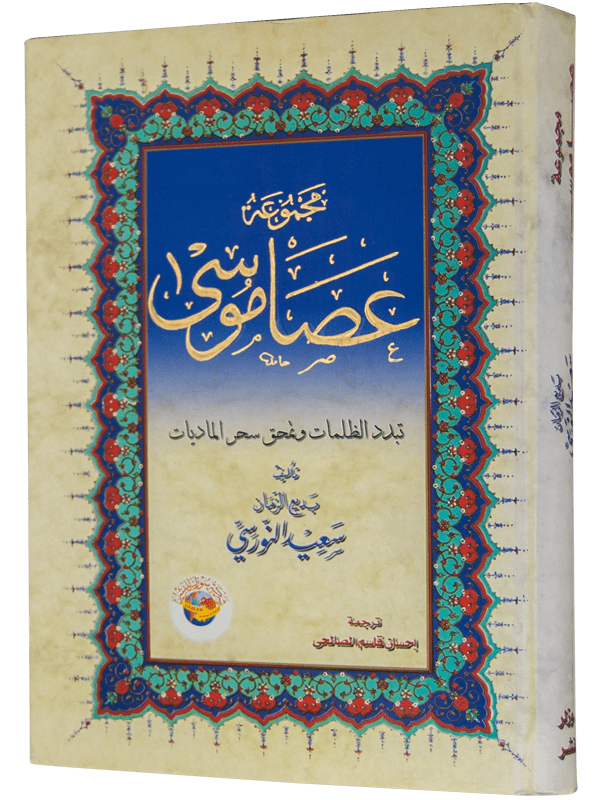 مجموعة
عصا موسى
تبدد الظلمات وتمحق سحر الماديات
تأليف
بديع الزمان
سعيد النورسي
ترجمة
إحسان قاسم الصالحي
مجموعة
بديع الزمان